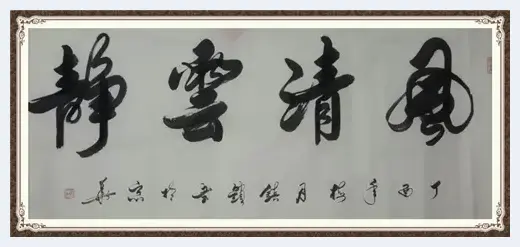 風清雲靜
丁酉年梅月書於京華